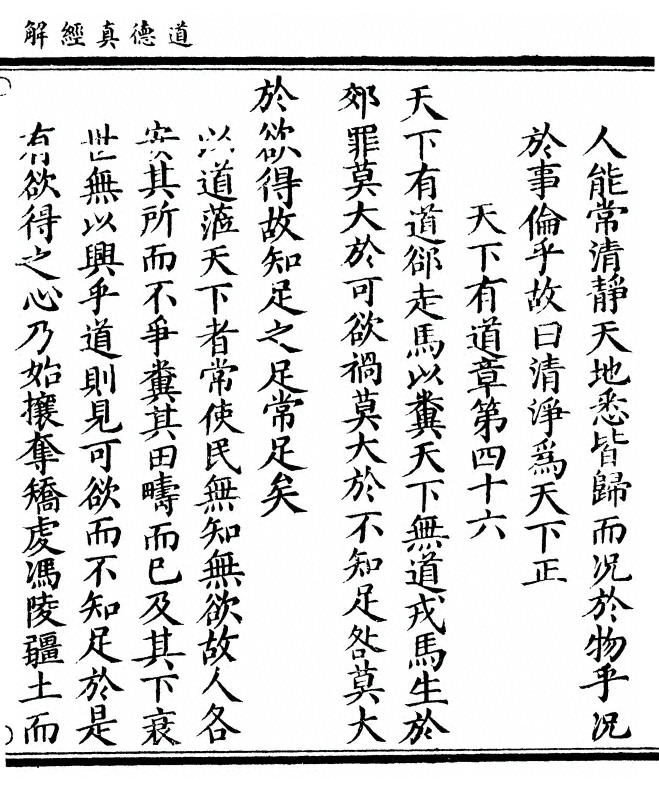 道德真經解
人能常清靜天地悉皆歸而况於物乎况
於事倫乎故曰清淨爲天下正
天下有道章第四十六
天下有道郤走馬以糞天下無道戎馬生於
郊罪莫大於可欲禍莫大於不知足咎莫大
於欲得故知足之足常足矣
以道蒞天下者常使民無知無欲故人各
安其所而不爭糞其田疇而已及其下衰
世無以興乎道則見可欲而不知足於是
有欲得之心乃始攘奪矯虔馮陵疆土而